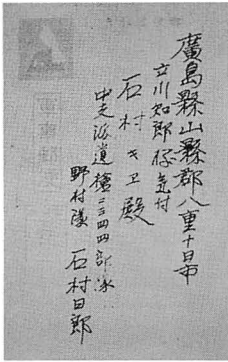 廣島縣山縣郡八重十日市
立川知郎様気村
石村キヱ殿
中支派遣槍二三四四部隊
野村隊 石村田郎